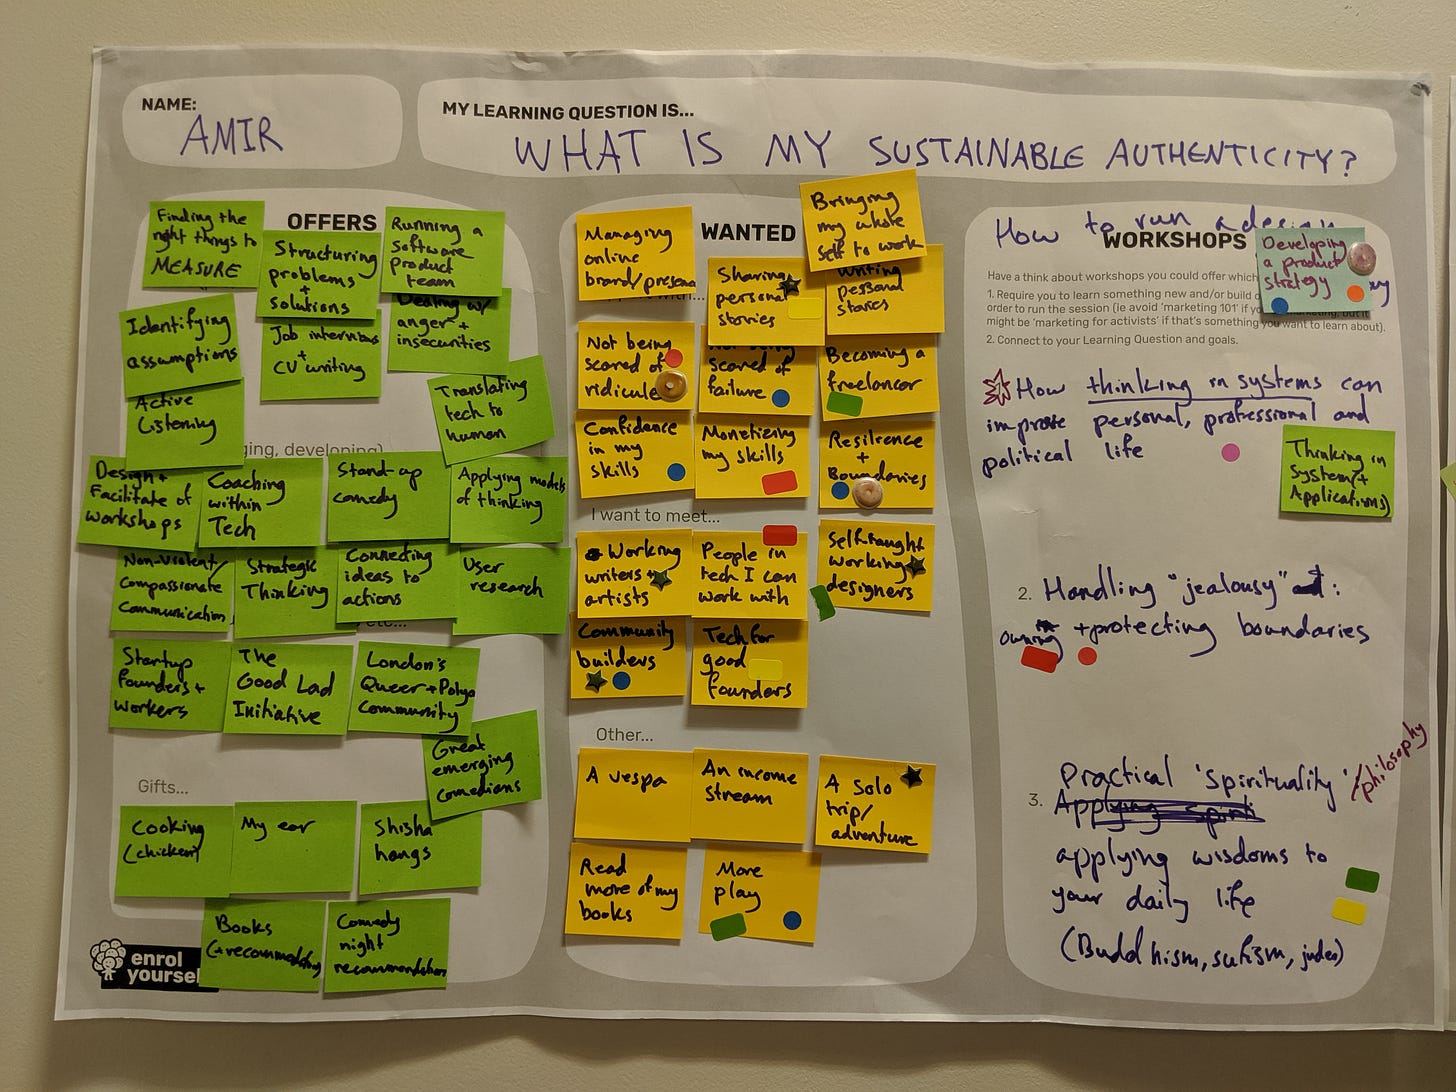 NAME:
AMIR
MY LEARNING QUESTION IS...
WHAT IS MY SUSTAINABLE AUTHENTICITY?
OFFERS
Finding the
right things to
MEASURE
Structuring
problems
+
solutions
Running a
software
product
team
Identifying
assumptions
Job interviews
+
CV writing
Dealing w/
anger +
insecurities
Active
Listening
Translating
tech to
human
ging, developing)
Design +
Facilitate of
workshops
Coaching
within
Tech
Stand-up
comedy
Applying models
of thinking
Non-violent/
Compassionate
Communication
Strategic
Thinking
Connecting
ideas to
actions
User
research
etc...
Startup
founders +
workers
The
Good Lad
Initiative
London's
Queer + Polya
Community
Great
emerging
comedians
Gifts...
Cooking
(chicken)
My ear
Shisha
hangs
Books
(+recommendations)
Comedy
night
recommendation
enrol
yoursel
WANTED
Managing
online
brand/presence
Sharing
personal
stories
Bringing
my whole
self to work
Writing
personal
stories
with...
Not being
scared of
ridicule
Not being
scared of
failure
Becoming a
freelancer
Confidence
in my
skills
Monetising
my skills
Resilience
+
Boundaries
I want to meet...
Working
writers +
artists
People in
tech I can
work with
Self-taught
working
designers
Community
builders
Tech for
good
founders
Other...
A vespa
An income
stream
A Solo
trip/
adventure
Read
more of my
books
More
play
How to run a design
WORKSHOPS
Developing
a product
strategy
Have a think about workshops you could offer which
1. Require you to learn something new and/or build
order to run the session (ie avoid 'marketing 101' if
might be 'marketing for activists' if that's something you want to learn about).
2. Connect to your Learning Question and goals.
1 How thinking in systems can
improve personal, professional and
political life
Thinking in
Systems (+
Applications)
2. Handling "jealousy" :
owning + protecting boundaries
Practical 'spirituality' /philosophy
3. Applying spirit
applying wisdoms to
your daily life
(Buddhism, sufism, judeo)